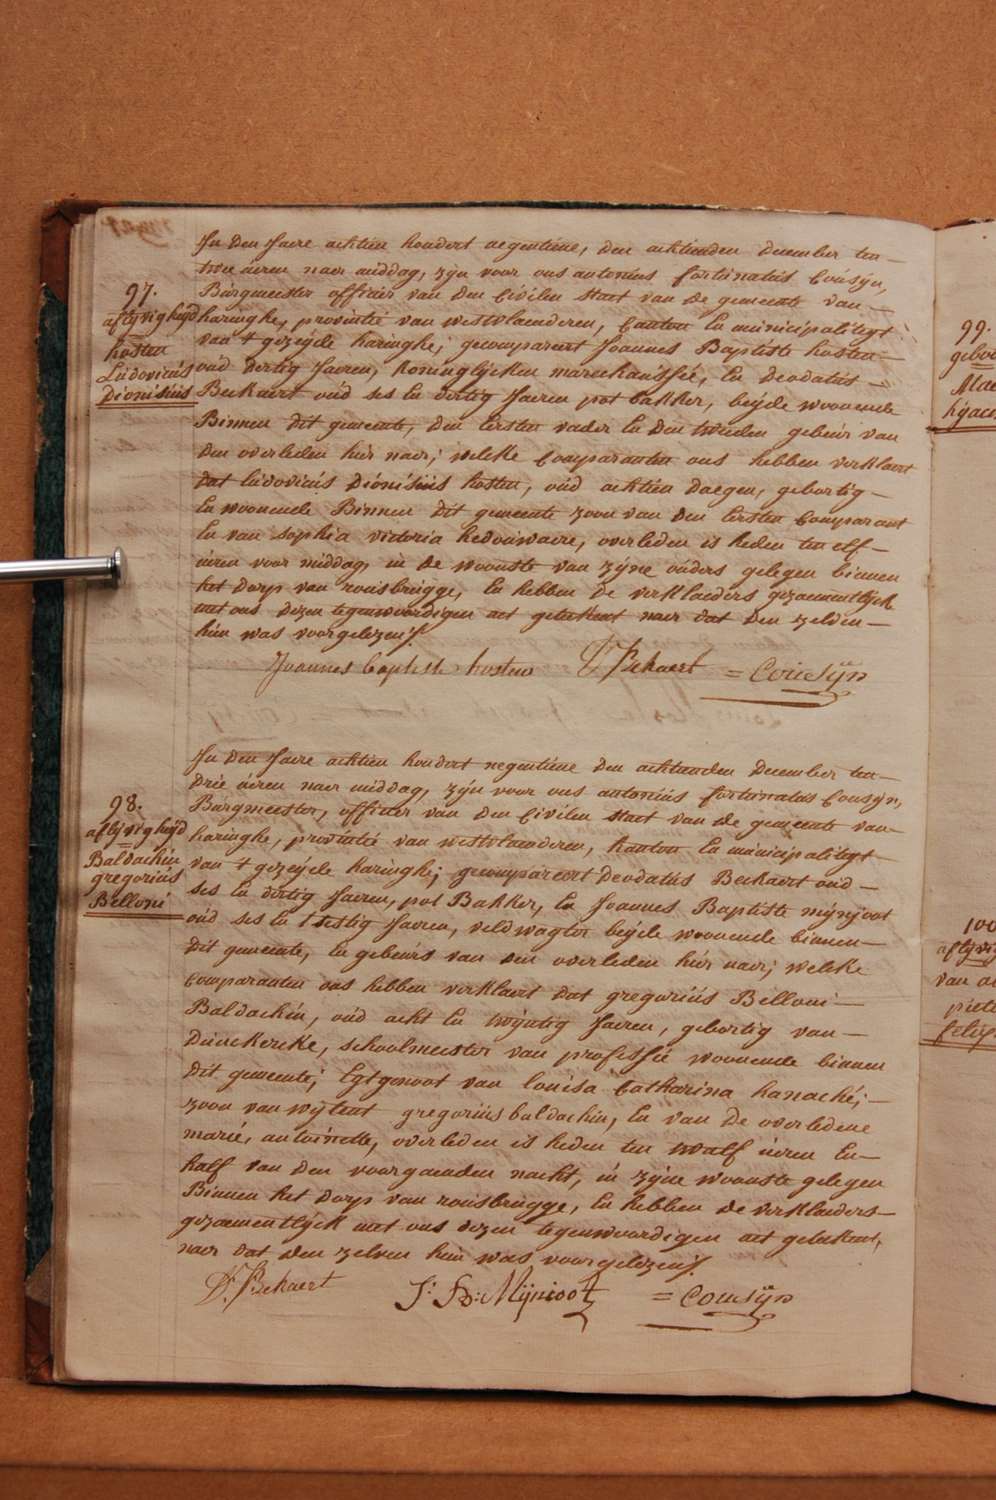 97.
aflijvigheijd
hosten
Ludovicus
Dionisius
In den Jaere achtien hondert negentiene, den achtenden december ten
twee úeren naer middag, zijn voor ons antonius fortunatús Coúsijn,
Búrgmeester officier van den Civilen staet van de gemeente van
haringhe, provintie van westvlaenderen, Canton En municipaliteijt
van 't gezeijde haringhe; gecompareert Joannes Baptiste hosten
oúd dertig Jaeren, koninglijcken marechaússée, En deodatús
Beckaert oúd ses En dertig Jaeren pot bakker, beijde woonende
Binnen dit gemeente, den Eersten vader En den tweeden gebúer van
den overleden hier naer; welcke Comparanten ons hebben verklaert
dat lúdovicús diónisiús hosten, oúd achtien daegen, gebortig
En woonende Binnen dit gemeente zoon van den Eersten Comparant
En van sophia victoria hedoúwaere, overleden is heden ten elf
úeren voor middag, in de woonste van zijne oúders gelegen binnen
het dorp van roúsbrúgge, En hebben de verklaerders gezaementlijck
met ons dezen tegenwoordigen act geteekent naer dat den zelven
hún was voorgelezen.
Joannes baptiste hosten D: Bekaert = Cousijn
98.
aflijvigheijd
Baldachin
gregoriús
Belloni
In den Jaere achtien hondert negentiene den achtenden december ten
drie úeren naer middag, zijn voor ons antoniús fortúnatús Coúsijn,
Búrgmeester, officier van den Civilen staet van de gemeente van
haringhe, provintie van westvlaenderen, kanton En múnicipaliteijt
van 't gezeijde haringhe; gecompareert deodatús Beckaert oúd
ses En dertig Jaeren, pot Bakker, En Joannes Baptiste mijnjoot
oúd ses En tsestig Jaeren, veldwagter beijde woonende binnen
dit gemeente, En gebúers van den overleden hier naer; welcke
Comparanten ons hebben verklaert dat gregoriús Belloni
Baldachin, oúd acht En twijntig Jaeren, gebortig van
Dúnckercke, schoolmeester van professie woonende binnen
dit gemeente; Egtgenoot van louisa Catharina hanaché;
zoon van wijlent gregoriús baldachin, En van de overledene
marie, antoinette, overleden is heden ten twalf úeren En
half van den voorgaenden nacht, in zijne woonste gelegen
Binnen het dorp van roúsbrúgge, En hebben de verklaerders
gezaementlijck met ons dezen tegenwoordigen act geteekent,
naer dat den zelven hún was voorgelezen.
D: Bekaert J: B: Mijnioot = Cousijn
99.
100